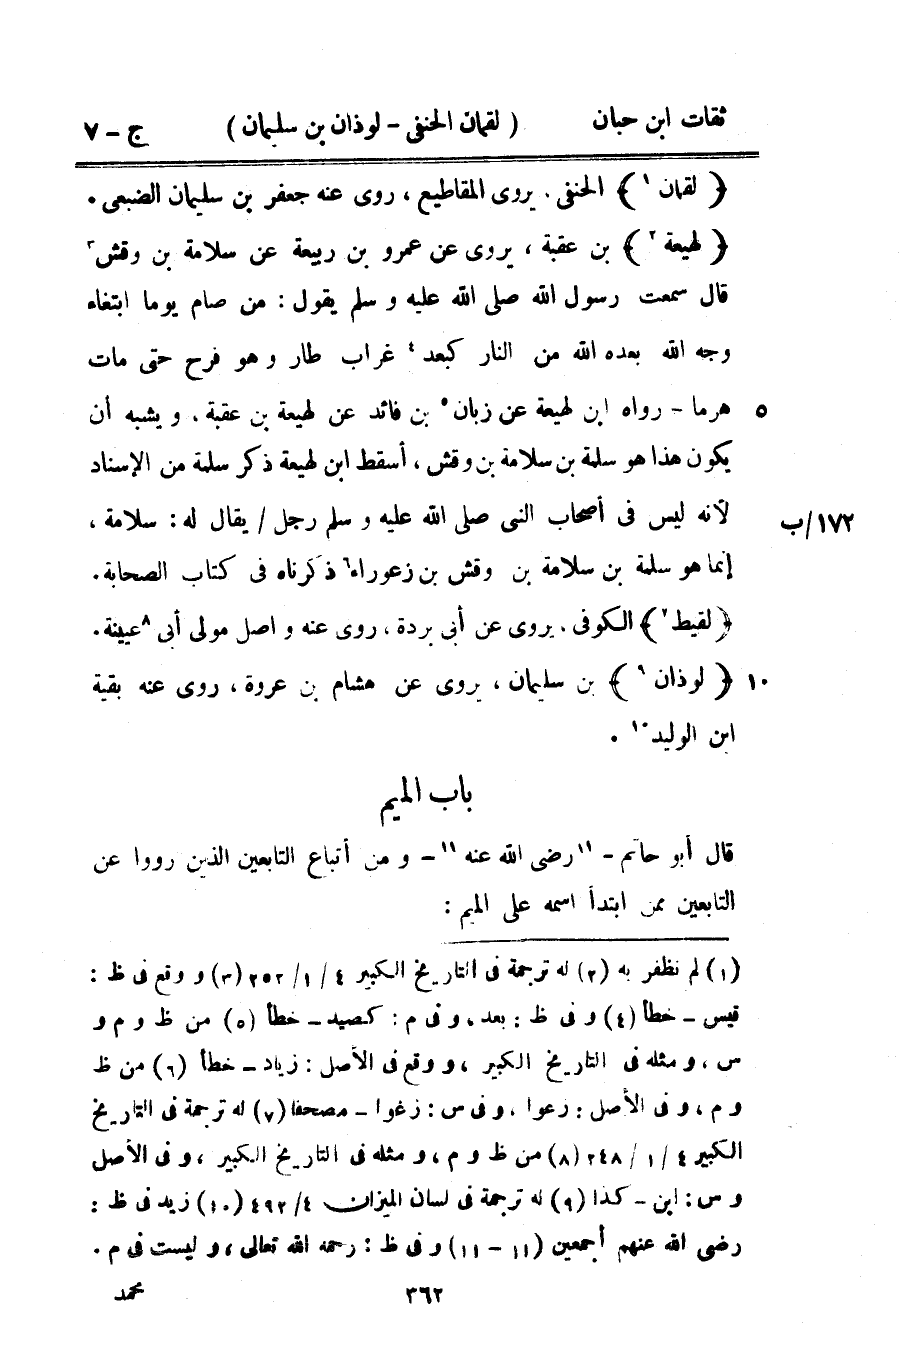 ثقات ابن حبان ( لقمان الحنفى - لوذان بن سليمان ) ج - ٧
﴿ لقمان ١ ﴾ الحنفى . يروى المقاطيع ، روى عنه جعفر بن سليمان الضبعى .
﴿ لهيعة ٢ ﴾ بن عقبة ، يروى عن عمرو بن ربيعة عن سلامة بن وقش ٣
قال سمعت رسول الله صلى الله عليه و سلم يقول : من صام يوما ابتغاء
وجه الله بعده الله من النار كبعد ٤ غراب طار و هو فرح حتى مات
٥ هرما - رواه ابن لهيعة عن زبان ٥ بن فائد عن لهيعة بن عقبة . و يشبه أن
يكون هذا هو سلمة بن سلامة بن وقش ، أسقط ابن لهيعة ذكر سلمة من الإسناد
لأنه ليس فى أصحاب النبى صلى الله عليه و سلم رجل / يقال له : سلامة ، ١٧٢/ب
إنما هو سلمة بن سلامة بن وقش بن زعوراء ٦ ذكرناه فى كتاب الصحابة .
﴿ لقيط ٧ ﴾ الكوفى . يروى عن أبى بردة ، روى عنه و اصل مولى أبى ٨ عيينة .
١٠ ﴿ لوذان ٩ ﴾ بن سليمان ، يروى عن هشام بن عروة ، روى عنه بقية
ابن الوليد ١٠ .
باب الميم
قال أبو حاتم - ١١ رضى الله عنه ١١ - و من أتباع التابعين الذين رووا عن
التابعين ممن ابتدأ اسمه على الميم :
(١) لم نظفر به (٢) له ترجمة فى التاريخ الكبير ٤ / ١ / ٢٥٢ (٣) و وقع فى ظ :
قيس - خطأ (٤) و فى ظ : بعد ، و فى م : كصيد - خطأ (٥) من ظ و م و
س ، و مثله فى التاريخ الكبير ، و وقع فى الأصل : زياد - خطأ (٦) من ظ
و م ، و فى الأصل : زعوا ، و فى س : زغوا - مصحفا (٧) له ترجمة فى التاريخ
الكبير ٤ / ١ / ٢٤٨ (٨) من ظ و م ، و مثله فى التاريخ الكبير ، و فى الأصل
و س : ابن - كذا (٩) له ترجمة فى لسان الميزان ٤ / ٤٩٢ (١٠) زيد فى ظ :
رضى الله عنهم أجمعين (١١ - ١١) و فى ظ : رحمه الله تعالى ، و ليست فى م .
٣٦٢ محمد